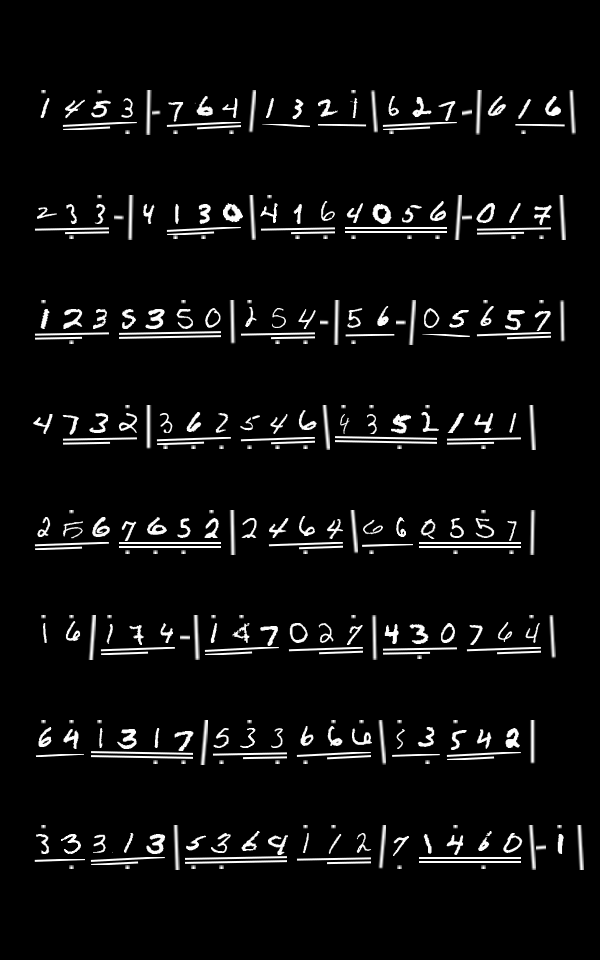 1 4 5 3 | - 7 6 4 | 1 3 2 1 | 6 2 7 - | 6 1 6 |
2 3 3 - | 4 1 3 0 | 4 1 6 4 0 5 6 | - 0 1 7 |
1 2 3 5 3 5 0 | 2 5 4 - | 5 6 - | 0 5 6 5 7 |
4 7 3 2 | 3 6 2 5 4 6 | 4 3 5 2 1 4 1 |
2 5 6 7 6 5 2 | 2 4 6 4 | 6 6 2 5 5 7 |
1 6 | 1 7 4 - | 1 4 7 0 2 7 | 4 3 0 7 6 4 |
6 4 1 3 1 7 | 5 3 3 6 6 6 | 5 3 5 4 2 |
3 3 3 1 3 | 5 3 6 4 1 1 2 | 7 1 4 6 0 | - 1 |